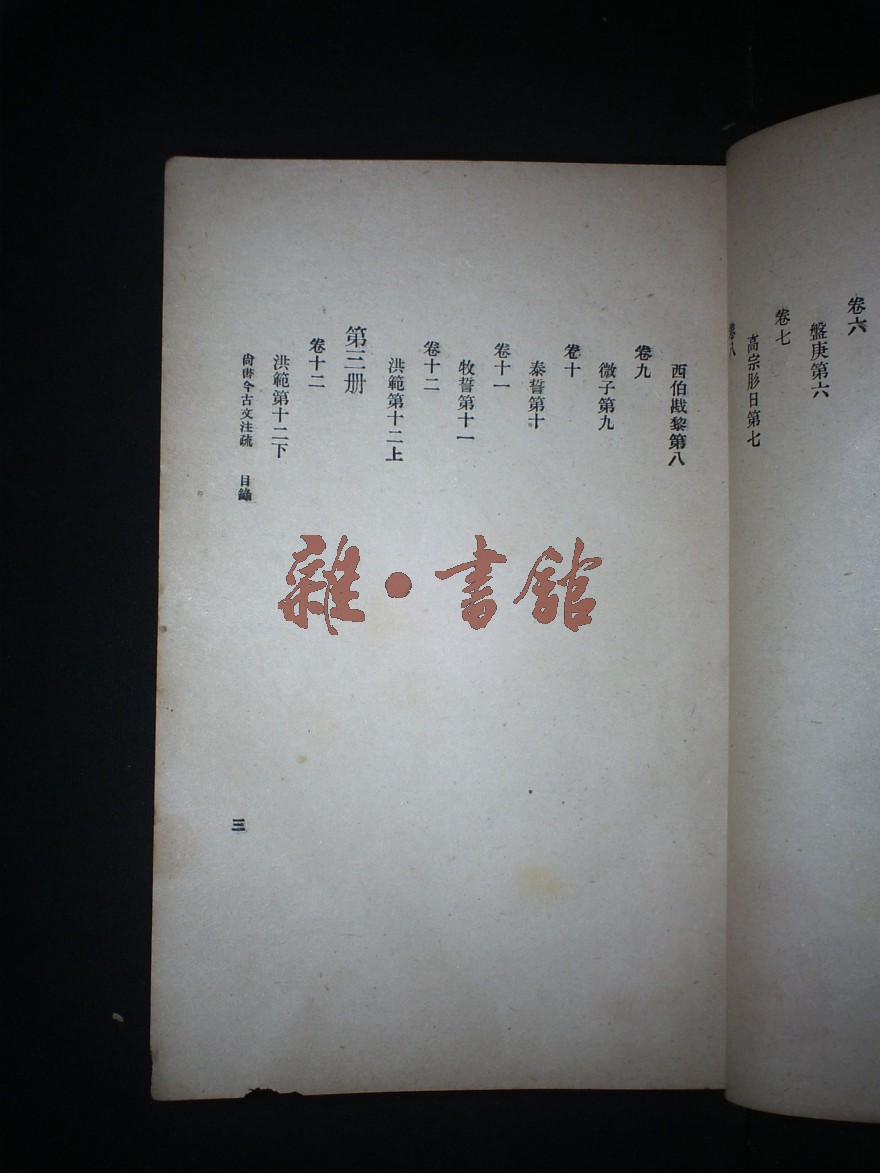 卷六
盤庚第六
卷七
高宗肜日第七
卷八
西伯戡黎第八
卷九
微子第九
卷十
泰誓第十
卷十一
牧誓第十一
卷十二
洪範第十二上
第三册
卷十二
洪範第十二下
尚書今古文注疏 目錄
三
雜·書館